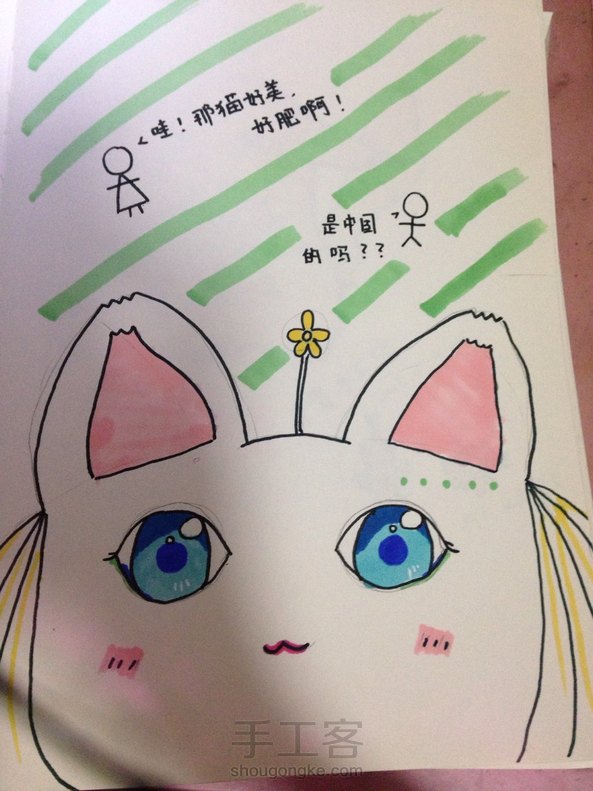 哇！那猫好美.
好肥啊！
是中国
的吗？？
手工客
shougongke.com